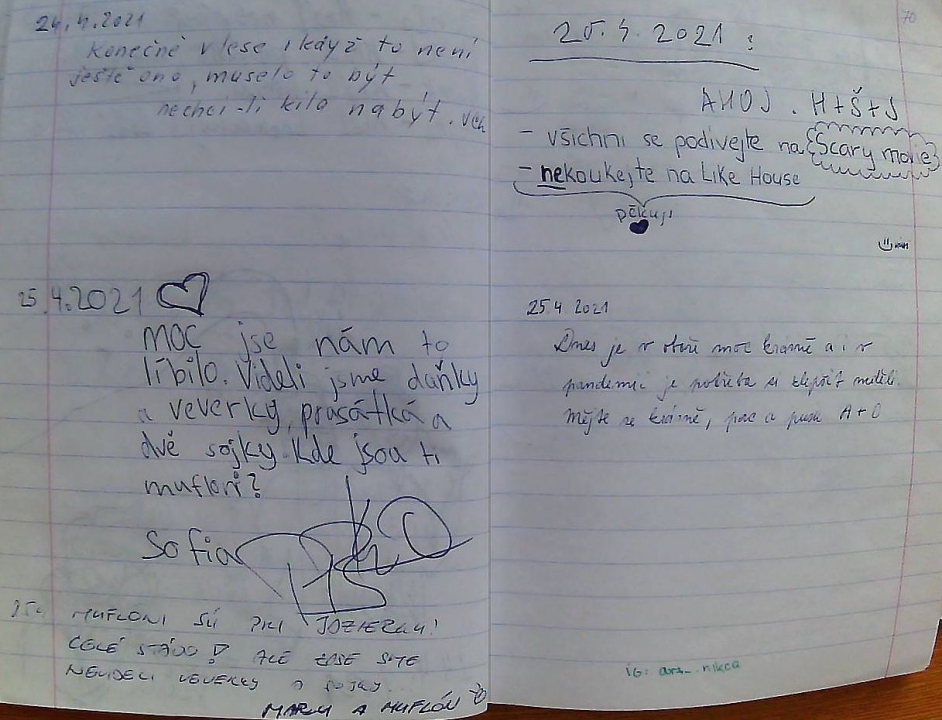 24.4.2021
Konečně v lese i když to není
ještě ono, muselo to být
nechci-li kilo nabýt.
25.4.2021
moc jse nám to
líbilo. Viděli jsme daňky
a veverky, prasátka a
dvě sojky. Kde jsou ti
mufloni?
Sofia
25.4. MUFLONI SÚ PRI JAZIERKU!
CELÉ STÁDO! ALE ZASE SME
NEVIDELI VEVERKY A SOJKY...
A MUFLÓN
70
25.4.2021:
AHOJ. H+Š+J
- všichni se podívejte na Scary movie
- nekoukejte na Like House
pěkuji
25.4.2021
Dnes je v oboře moc krásně a i v
pandemii je potřeba si zlepšit neděli.
Mějte se krásně, pac a pusu A+O
IG: